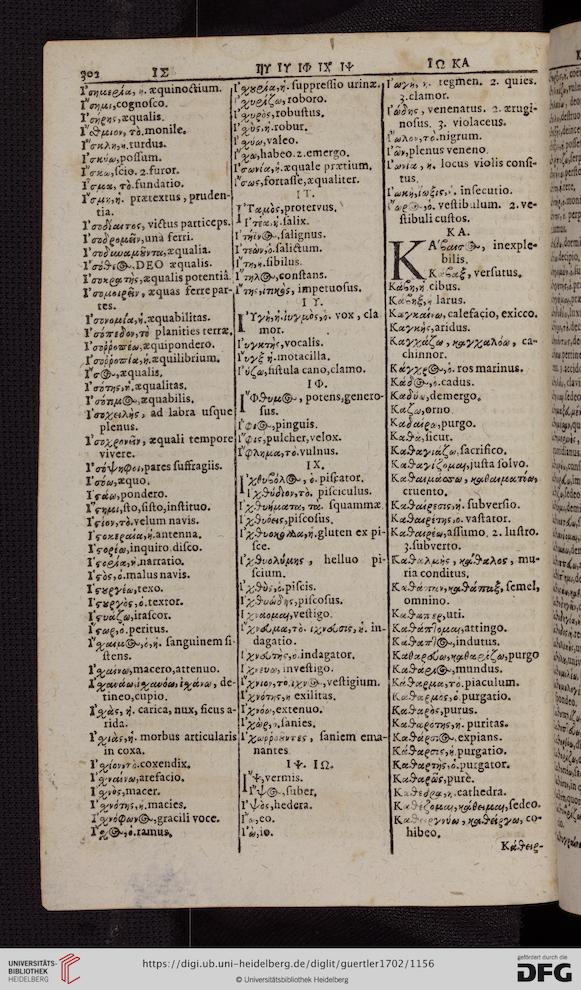 302 ΙΣ ΠΥ ΙΥ ΙΦ ΙΧ ΙΨ ΙΩ ΚΑ
Ἰσημερία, ἡ. æquinoctium.
Ἴσημι, cognosco.
Ἰσήρης, æqualis.
Ἴσθμιον, τὸ. monile.
Ἴσκλη, ἡ. turdus.
Ἰσκύω, possum.
Ἴσκω, scio. 2. furor.
Ἴσμα, τὸ. fundatio.
Ἴσμη, ἡ. prætextus, pruden-
tia.
Ἰσοδίαιτος, victus particeps.
Ἰσοδρομεῖν, una ferri.
Ἰσοδυναμοῦντα, æqualia.
Ἰσόθεος, DEO æqualis.
Ἰσοκρατὴς, æqualis potentiâ.
Ἰσομοιρεῖν, æquas ferre par-
tes.
Ἰσονομία, ἡ. æquabilitas.
Ἰσόπεδον, τὸ planities terræ.
Ἰσορροπέω, æquipondero.
Ἰσορροπία, ἡ. æquilibrium.
Ἴσος, æqualis.
Ἰσότης, ἡ. æqualitas.
Ἰσότιμος, æquabilis.
Ἰσοχειλὴς, ad labra usque
plenus.
Ἰσοχρονεῖν, æquali tempore
vivere.
Ἰσόψηφοι, pares suffragiis.
Ἰσόω, æquo.
Ἱστάω, pondero.
Ἵστημι, sto, sisto, instituo.
Ἱστίον, τὸ. velum navis.
Ἱστοκεραία, ἡ. antenna.
Ἱστορέω, inquiro, disco.
Ἱστορία, ἡ. narratio.
Ἱστὸς, ὁ. malus navis.
Ἱστουργέω, texo.
Ἱστουργὸς, ὁ. textor.
irascor.
Ἴστωρ, ὁ. peritus.
Ἴσχαιμος, ὁ, ἡ. sanguinem si-
stens.
Ἰσχαίνω, macero, attenuo.
Ἰσχανάω, ἰσχανόω, ἰσχάνω, de-
tineo, cupio.
Ἰσχὰς, ἡ. carica, nux, ficus a-
rida.
Ἰσχιὰς, ἡ. morbus articularis
in coxa.
Ἰσχίον, τὸ. coxendix.
Ἰσχναίνω, arefacio.
Ἰσχνὸς, macer.
Ἰσχνότης, ἡ. macies.
Ἰσχνόφωνος, gracili voce.
Ἴσχος, ὁ. ramus.
Ἰσχυρία, ἡ. suppressio urinæ.
Ἰσχυρίζω, roboro.
Ἰσχυρὸς, robustus.
Ἰσχὺς, ἡ. robur.
Ἰσχύω, valeo.
Ἴσχω, habeo. 2. emergo.
Ἰσωνία, ἡ. æquale prætium.
Ἴσως, fortasse, æqualiter.
ΙΤ.
Ἰταμὸς, protervus.
Ἰτέα, ἡ. salix.
Ἰτήϊνος, salignus.
Ἰτεὼν, ὁ. salictum.
Ἴτη, ἡ. sibilus.
Ἴτηλος, constans.
Ἴτης, ἰτικὸς, impetuosus.
ΙΥ.
Ἰϋγὴ, ἡ. ἰυγμὸς, ὁ. vox, cla
mor.
Ἰϋγκτὴς, vocalis.
Ἴϋγξ ἡ. motacilla.
Ἰΰζω, fistula cano, clamo.
ΙΦ.
Ἴφθυμος, potens, genero-
sus.
Ἴφιος, pinguis.
Ἶφις, pulcher, velox.
Ἴφλημα, τὸ. vulnus.
ΙΧ.
Ἰχθυβόλος, ὁ. piscator.
Ἰχθύδιον, τὸ. pisciculus.
Ἰχθυήματα, τὰ. squammæ.
Ἰχθυόεις, piscosus.
Ἰχθυοκόλλα, ἡ. gluten ex pi-
sce.
Ἰχθυολύμης, helluo pi-
scium.
Ἰχθὺς, ὁ. piscis.
Ἰχθυώδης, piscosus.
Ἰχνάομαι, vestigo.
Ἴχνευμα, τὸ. ἴχνευσις, ἡ. in-
dagatio.
Ἰχνευτὴς, ὁ. indagator.
Ἰχνεύω, investigo.
Ἴχνιον, τὸ. ἴχνος, vestigium.
Ἰχνότης, ἡ exilitas.
Ἰχνόω, extenuo.
Ἰχὼρ, ὁ. sanies.
Ἰχωρροοῦντες, saniem ema-
nantes
ΙΨ. ΙΩ.
Ἲψ, vermis.
Ἴψος, suber.
Ἰψὸς, hedera.
eo.
Ἰὼ, io.
Ἰωγὴ, ἡ. tegmen. 2. quies.
3. clamor.
Ἰώδης, venenatus. 2. ærugi-
nosus. 3. violaceus.
Ἴωλον, τὸ. nigrum.
Ἰῶν, plenus veneno.
Ἰωνιὰ, ἡ. locus violis consi-
tus.
Ἰωκὴ, ἴωξις, ἡ. insecutio.
ὁ. vestibulum. 2. ve-
stibuli custos.
ΚΑ.
ΚΑ'βαισος, inexple-
bilis.
Κάβαξ, versutus.
Κάβη, ἡ. cibus.
Κάβηξ, ἡ larus.
Καγκαίνω, calefacio, exicco.
Καγκὴς, aridus.
Καγχάζω, καγχαλόω, ca-
chinnor.
Κάγχρος, ὁ. ros marinus.
Κάδος, ὁ. cadus.
Καδύω, demergo.
Καζω, orno
Καθαίρα, purgo.
Καθὰ, sicut.
Καθαγιάζω, sacrifico.
Καθαγίζομαι, justa solvo.
Καθαιμάσσω, καθαιματόω,
cruento.
Καθαίρεσις, ἡ. subversio.
Καθαιρέτης, ὁ. vastator.
Καθαιρέω, assumo. 2. lustro.
3. subverto.
Καθαλμὴς, κάθαλος, mu-
ria conditus.
Καθάπαν, καθάπαξ, semel,
omnino.
Καθάπερ, uti.
Καθάπτομαι, attingo.
Καθαπτὸς, indutus.
Καθαρεύω, καθαρίζω, purgo
Καθαρὸς, mundus.
Κάθαρμα, τὸ. piaculum.
Καθαρμὸς, ὁ. purgatio.
Καθαρὸς, purus.
Καθαρότης, ἡ. puritas.
Καθάρσιος, expians.
Κάθαρσις, ἡ. purgatio.
Καθαρτὴς, ὁ. purgator.
Καθαρῶς, purè.
Καθέδρα, ἡ. cathedra.
Καθέζομαι, κάθειμαι, sedeo.
Καθειργνύω, καθείργω, co-
hibeo.
Κάθειρ-
UNIVERSITÄTS-
BIBLIOTHEK
HEIDELBERG
https://digi.ub.uni-heidelberg.de/diglit/guertler1702/1156
© Universitätsbibliothek Heidelberg
gefördert durch die
DFG